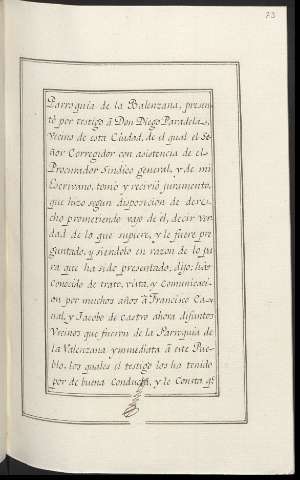 73
Parroquia de la Balenzana, presen-
tò por testigo â Don Diego Paradela,
Vecino de esta Ciudad, de el qual el Se-
ñor Corregidor con asistencia de el
Procurador Sindico general, y de mi
Escrivano, tomò y recivió juramento,
que hizo segun disposicion de dere-
cho prometiendo vajo de él, decir ver-
dad de lo que supiere, y le fuere pre-
guntado, y siendolo en razon de lo pa-
ra que ha sido presentado, dijo: haò
Conocido de trato, vista, y Comunicaci-
on por muchos años â Francisco Ca-
nal, y Jacobo de Castro ahora difuntos
Vecinos que fueron de la Parroquia de
la Valenzana ynmediata â este Pue-
blo, los quales el testigo los ha tenido
por de buena Conducta, y le Consta qe